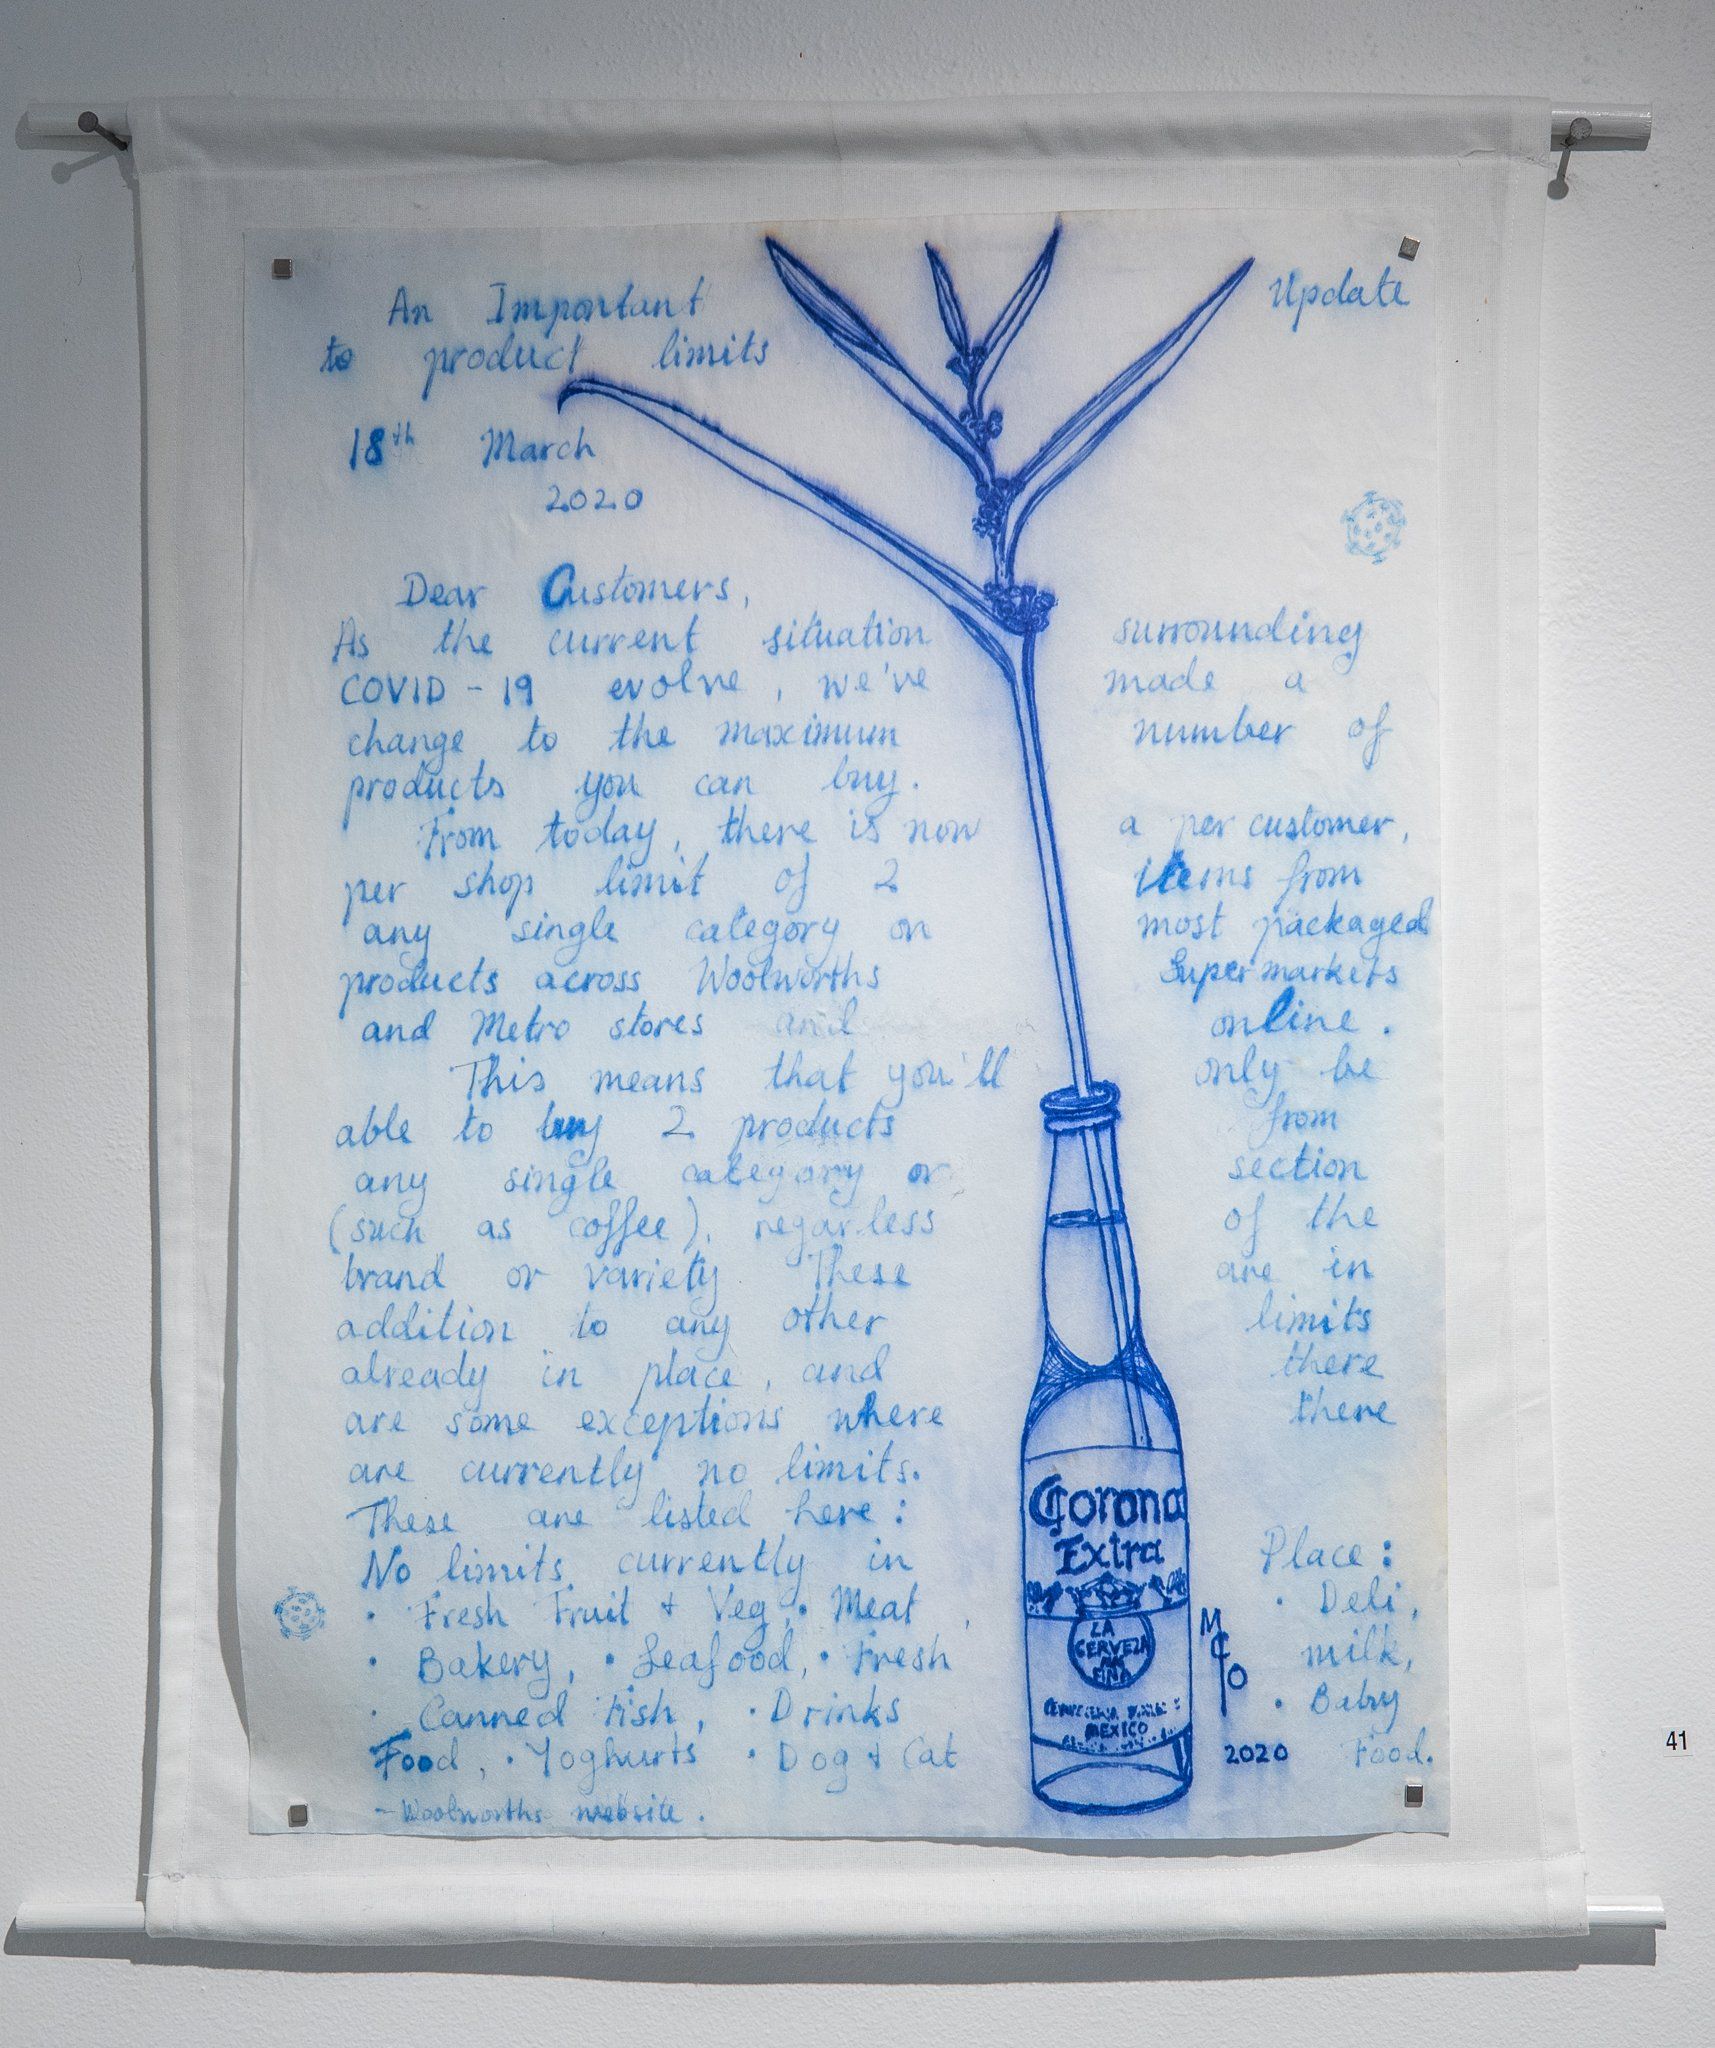 An Important Update
to product limits
18th March
2020
Dear Customers,
As the current situation surrounding
COVID-19 evolve, we've made a
change to the maximum number of
products you can buy.
From today, there is now a per customer,
per shop limit of 2 items from
any single category on most packaged
products across Woolworths Supermarkets
and Metro stores and online.
This means that you'll only be
able to buy 2 products from
any single category or section
(such as coffee), regarless of the
brand or variety These are in
addition to any other limits
already in place, and there
are some exceptions where there
are currently no limits.
These are listed here:
No limits currently in Place:
• Fresh Fruit + Veg, • Meat, • Deli,
• Bakery, • Seafood, • Fresh milk,
• Canned Fish, • Drinks • Baby
Food, • Yoghurts • Dog + Cat Food.
- Woolworths website.
Corona
Extra
LA
CERVEZA
MAS
FINA
MEXICO
MCO
2020
41